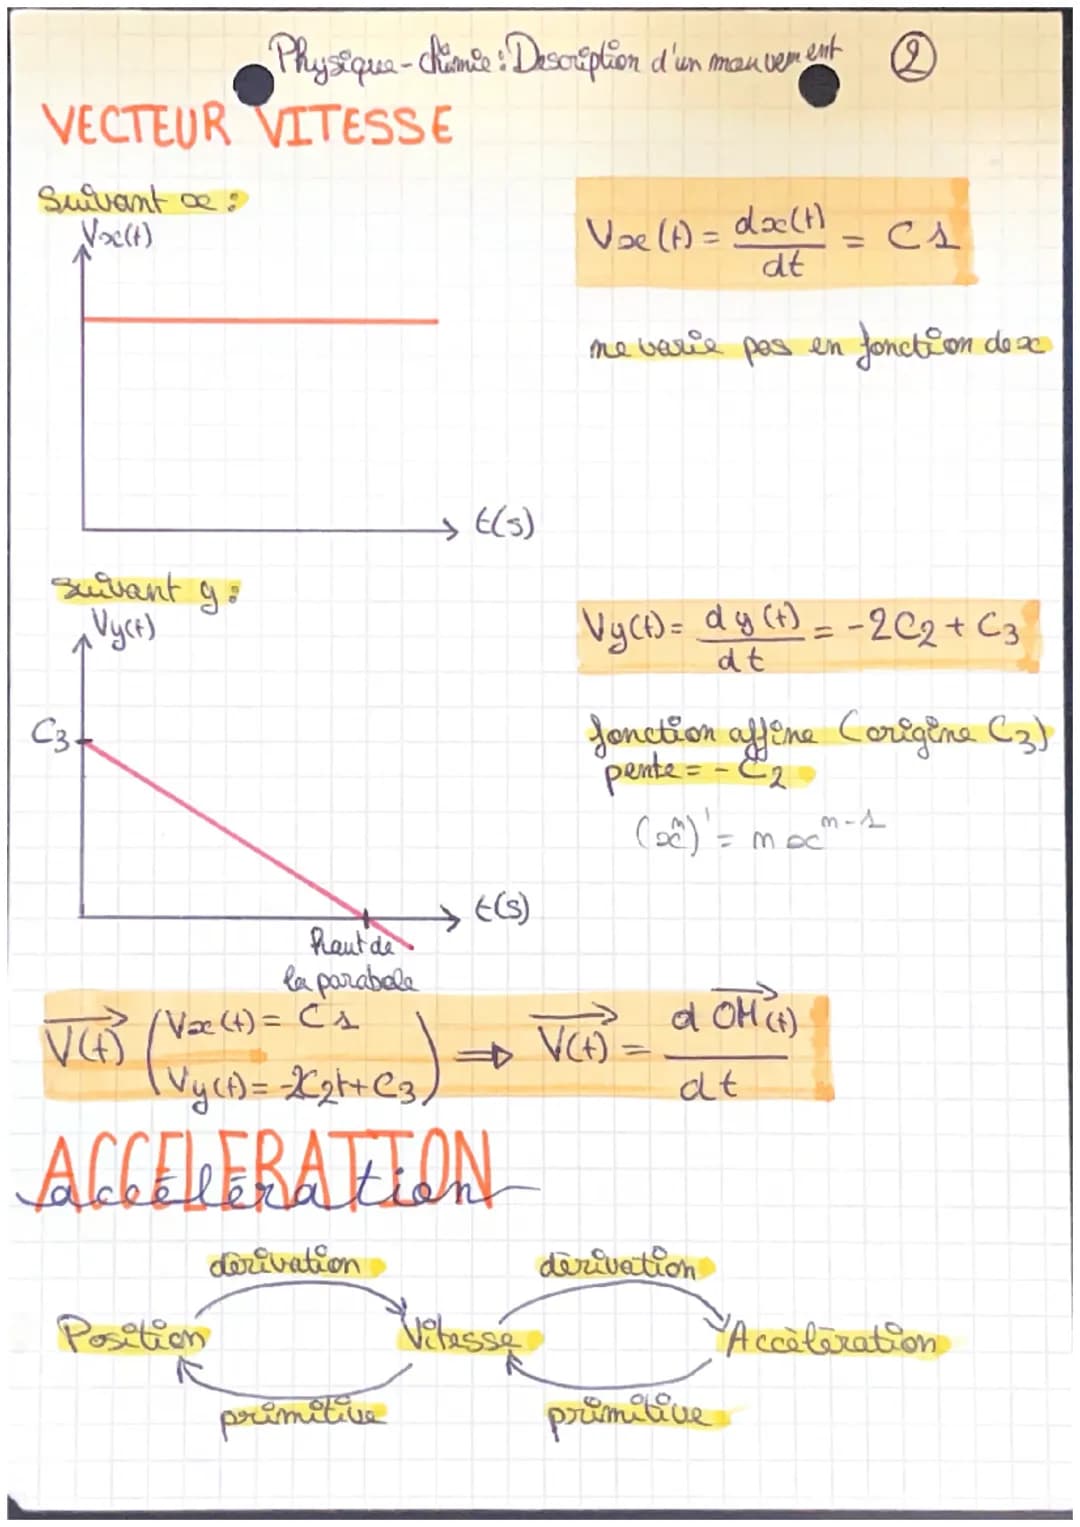 Physique-chimie : Description d'un mouvement ②
VECTEUR VITESSE
Suivant x :
Vx(t)
Vx(t) = dx(t)/dt = C1
ne varie pas en fonction de x
t(s)
Suivant y :
Vy(t)
Vy(t) = dy(t)/dt = -2C2 + C3
C3
fonction affine (origine C3)
pente = - C2
(xⁿ)' = n xⁿ⁻¹
t(s)
haut de
la parabole
V(t) (Vx(t) = C1
Vy(t) = -2C2t + C3) ⇒ V(t) = d OM(t)/dt
ACCELERATION
accélération
dérivation dérivation
Position Vitesse Accélération
primitive primitive